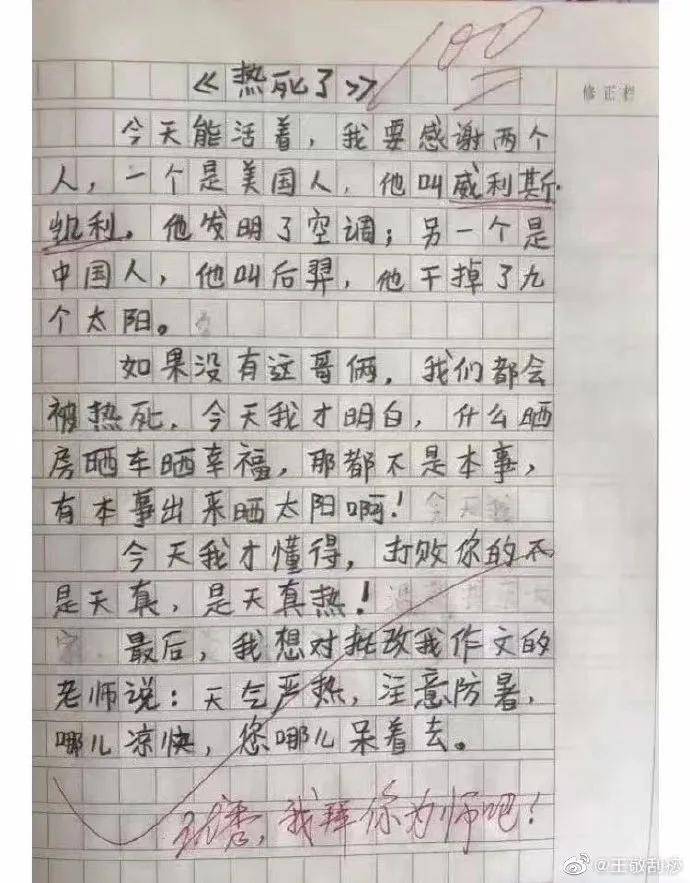 100
《热死了》
修正栏
今天能活着，我要感谢两个
人，一个是美国人，他叫威利斯·
凯利。他发明了空调；另一个是
中国人，他叫后羿，他干掉了九
个太阳。
如果没有这哥俩，我们都会
被热死，今天我才明白，什么晒
房晒车晒幸福，那都不是本事，
有本事出来晒太阳啊！
今天我才懂得，打败你的不
是天真，是天真热！
最后，我想对批改我作文的
老师说：天气严热，注意防暑，
哪儿凉快，您哪儿呆着去。
我拜你为师吧！
@王敬刮痧